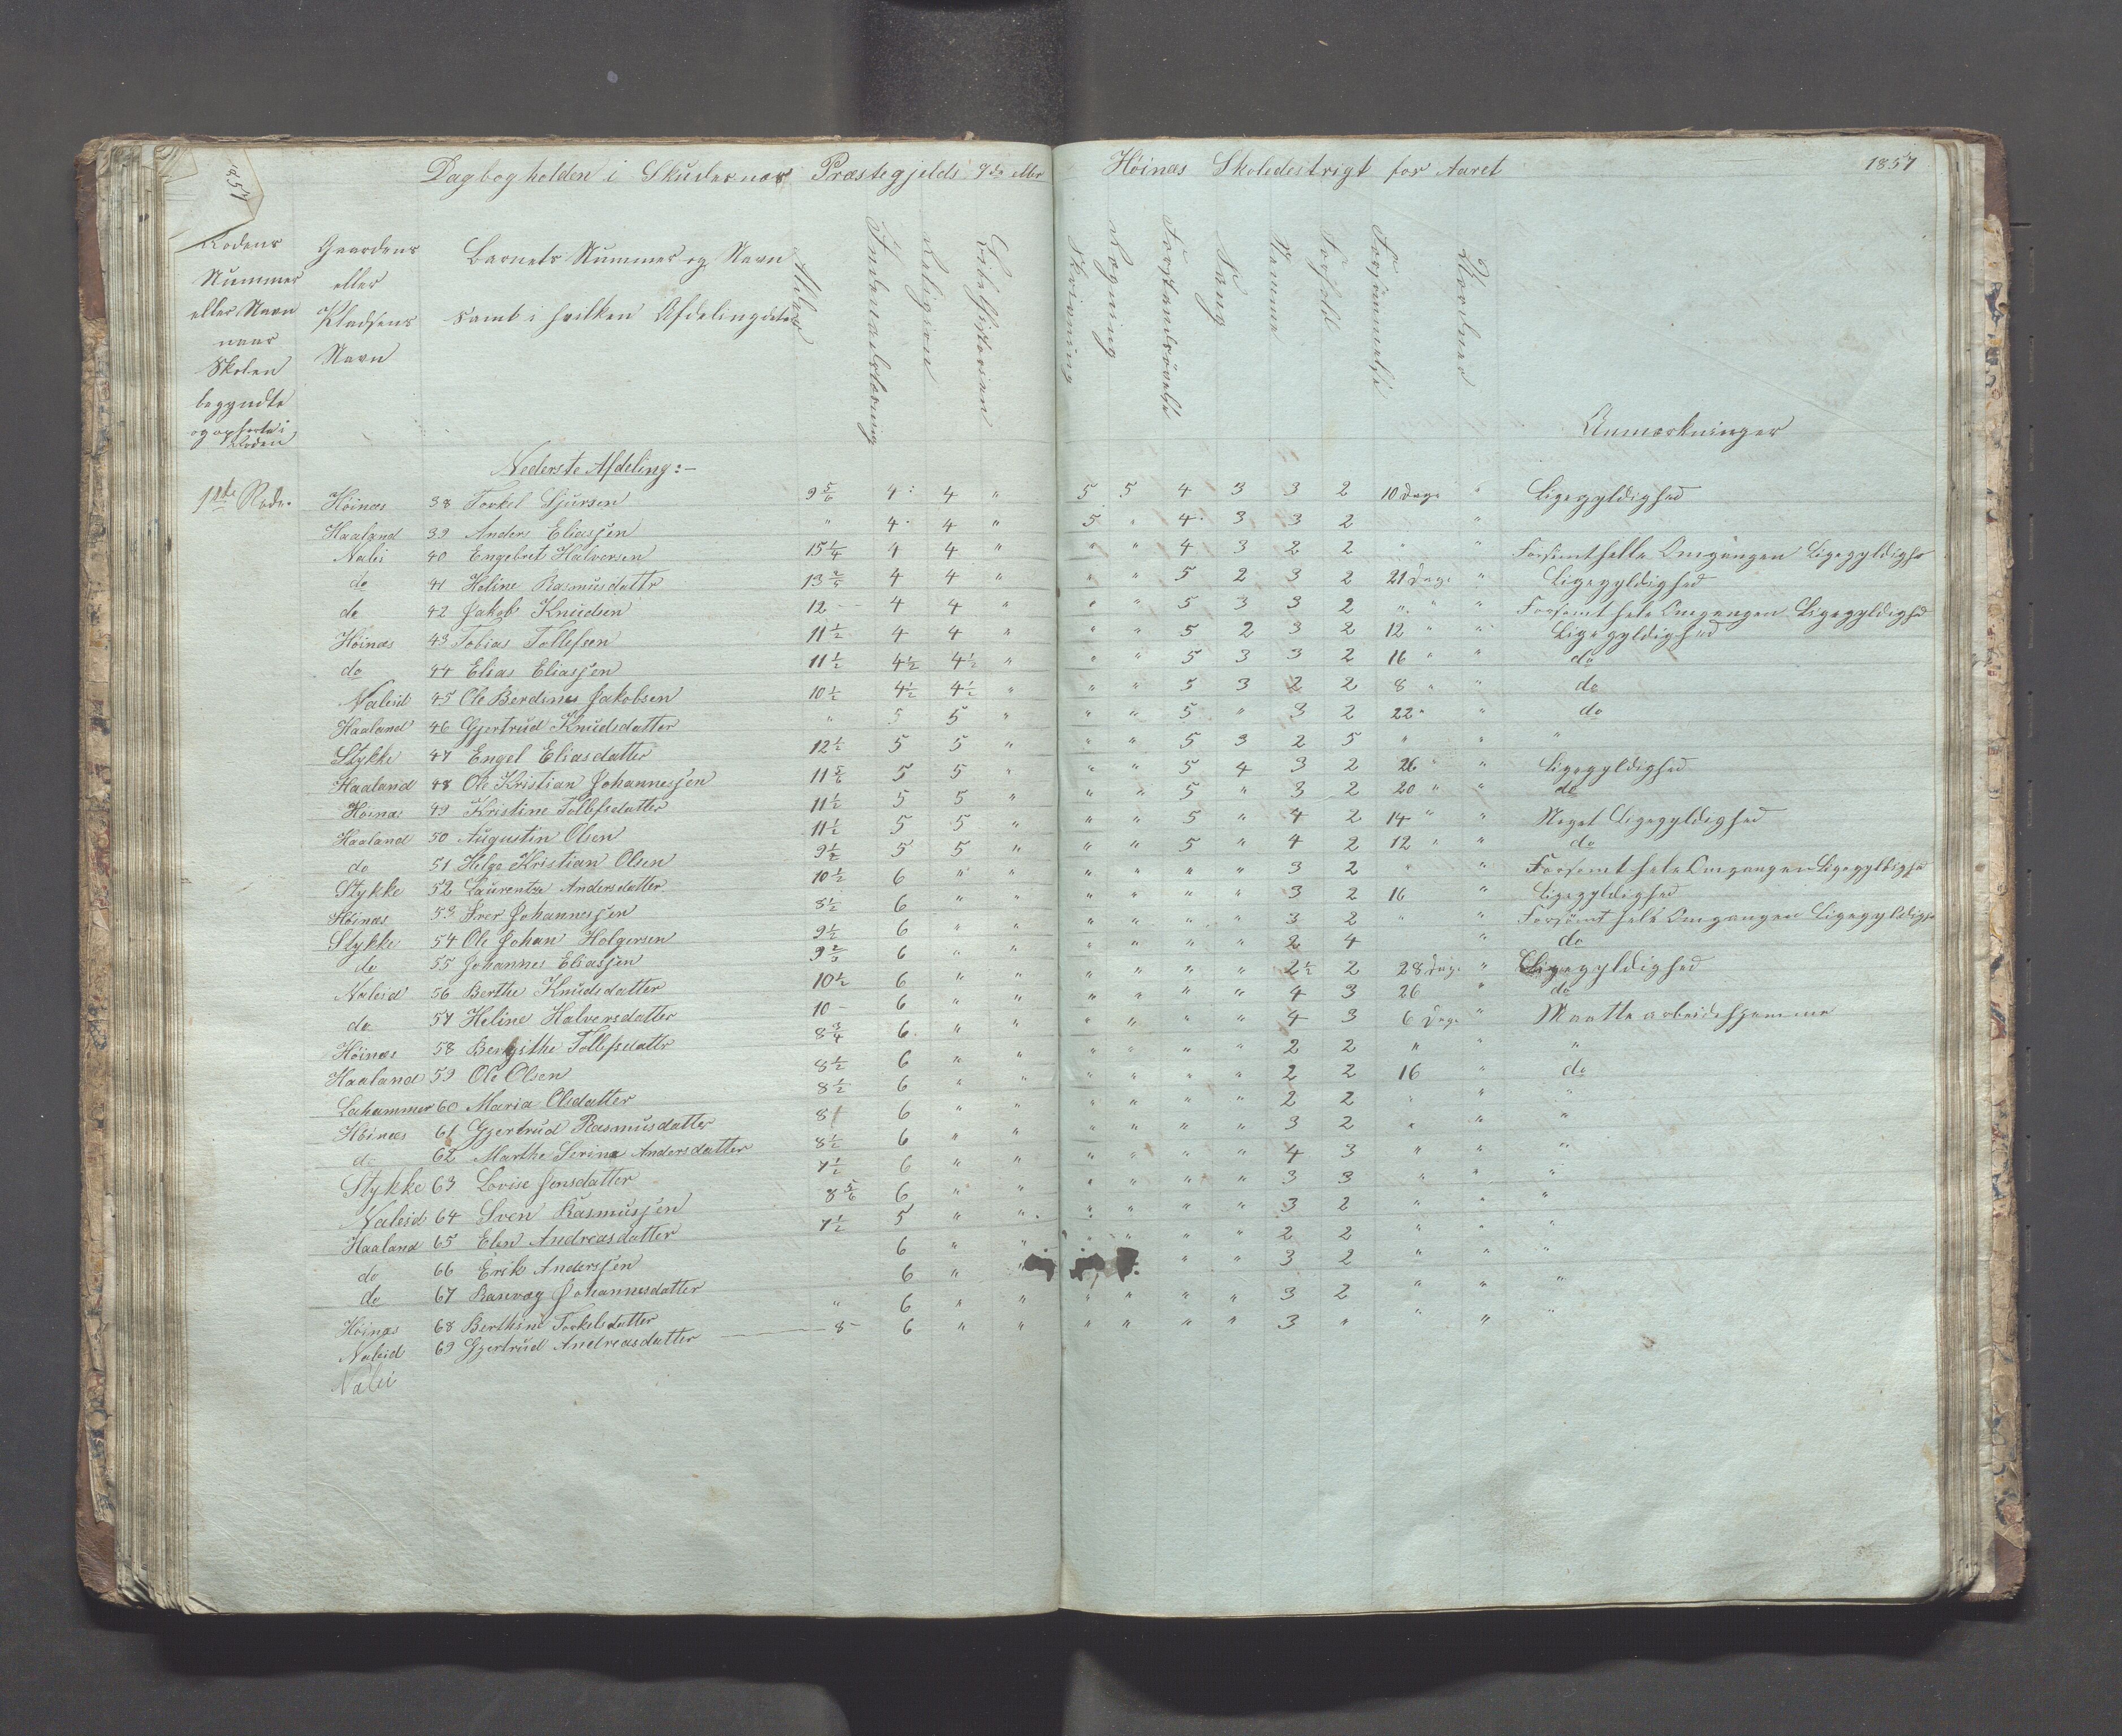 Dagbog holden i Skudesnæs Præstegjelds 7de eller Høinæs Skoledestrigt for Aaret 1857
Rodens Nummer eller Navn naar Skolen begyndte og ophørte i Roden
Gaardens eller Pladsens Navn
Barnets Nummer og Navn samt i hvilken Afdeling det er
Alder
Indenadslæsning
Religion
Bibelhistorien
Skrivning
Regning
Forstandsøvelse
Sang
Nemme
Forhold
Forsømmelse
Anmærkninger
Nederste Afdeling:-
1ste Rode. Høinæs 38 Torkel Sjursen 9 5/6 4 4 " 5 5 4 3 3 2 10 Dage " Ligegyldighed
Haaland 39 Anders Eliassen " 4 4 " 5 " 4 3 3 2 "
Nalei 40 Engebret Halvorsen 15 1/4 4 4 " " " 4 3 2 2 " " Forsømt helle Omgangen Ligegyldighe
do 41 Heline Rasmusdattr 13 4 4 " " " 5 2 3 2 21 Dage " Ligegyldighed
do 42 Jakob Knudsen 12 4 4 " " 5 3 3 2 " " " Forsømt hele Omgangen Ligegyldighe
Høinæs 43 Tobias Tollefsen 11 1/2 4 4 " " " 5 2 3 2 12 " " Ligegyldighed
do 44 Elias Eliassen 11 1/2 4 1/2 4 1/2 " " " 5 3 3 2 16 " " do
Naleid 45 Ole Berdines Jakobsen 10 1/2 4 1/2 4 1/2 " " " 5 3 2 2 8 " " do
Haaland 46 Gjertrud Knudsdatter " 5 5 " " " 5 " 3 2 22 " " do
Stykke 47 Engel Eliasdatter 12 1/2 5 5 " " " 5 3 2 5 " " "
Haaland 48 Ole Kristian Johannessen 11 5/6 5 5 " " " 5 4 3 2 26 " " Ligegyldighed
Høinæs 49 Kristine Tollefsdatter 11 1/2 5 5 " " " 5 " 3 2 20 " " do
Haaland 50 Augustin Olsen 11 1/2 5 5 " " " 5 " 4 2 14 " " Meget Ligegyldighed
do 51 Helge Kristian Olsen 9 1/2 5 5 " " " 5 " 4 2 12 " " do
Stykke 52 Laurentze Andersdatter 10 1/2 6 " " " " " " 3 2 " " Forsømt hele Omgangen Ligegyldighe
Høinæs 53 Iver Johannessen 8 1/2 6 " " " " " " 3 2 16 " Ligegyldighed
Stykke 54 Ole Johan Holgersen 9 1/2 6 " " " " " " 3 2 " " Forsømt hele Omgangen Ligegyldighe
do 55 Johannes Eliassen 9 6 " " " " " " 2 4 " do
Naleid 56 Berthe Knudsdatter 10 1/2 6 " " " " " " 2 1/2 2 28 Dage " Ligegyldighed
do 57 Heline Halversdatter 10 - 6 " " " " " " 4 3 26 " do
Høinæs 58 Bergithe Tollefsdattr 8 3/4 6 " " " " " " 4 3 6 Dage " Maatte arbeide hjemme
Haaland 59 Ole Olsen 8 1/2 6 " " " " " " 2 2 " " "
Lahammer 60 Maria Olsdatter 8 1/2 6 " " " " " " 2 2 16 " do
Høinæs 61 Gjertrud Rasmusdatter 8 6 " " " " " " 2 2 " " "
do 62 Marthe Serina Andersdatter 8 1/2 6 " " " " " " 3 2 " " "
Stykke 63 Lovise Jensdatter 7 1/2 6 " " " " " " 4 3 " " "
Naleid 64 Sven Rasmussen 8 5/6 6 " " " " " " 3 3 " " "
Haaland 65 Elen Andreasdatter 7 1/2 5 " " " " " " 3 2 " " "
do 66 Erik Anderssen 6 " " " " " " 2 2 " " "
do 67 Johannesdatter 6 " " " " 3 2 " " "
Høinæs 68 Berthine Torkelsdatter " 6 " " " " " " 3 2 " " "
Naleid 69 Gjertrud Andreasdatter 8 - 6 " " " " " " 3 " " " "
Nalei